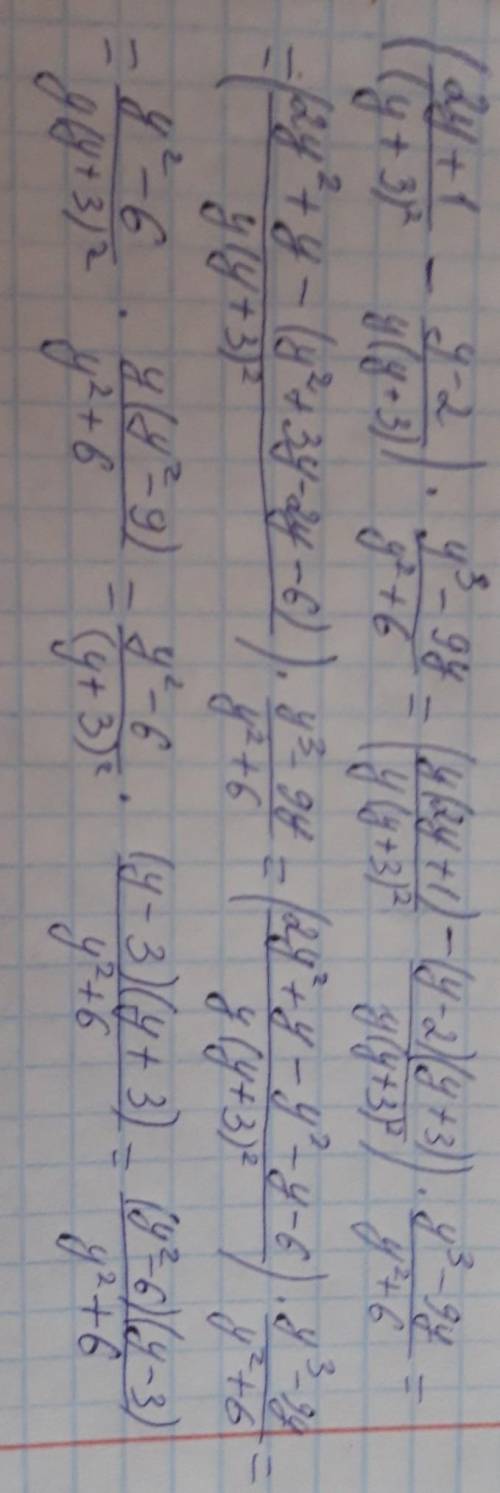 ((2y+1)/(y+3)² - (y-2)/(y(y+3))) · (y³-9y)/(y²+6) = (y(2y+1)/(y(y+3)²) - (y-2)(y+3)/(y(y+3)²)) · (y³-9y)/(y²+6) =
= ((2y²+y-(y²+3y-2y-6))/(y(y+3)²)) · (y³-9y)/(y²+6) = ((2y²+y-y²-y-6)/(y(y+3)²)) · (y³-9y)/(y²+6) =
= (y²-6)/(y(y+3)²) · y(y²-9)/(y²+6) = (y²-6)/(y+3)² · (y-3)(y+3)/(y²+6) = (y²-6)(y-3)/(y²+6)